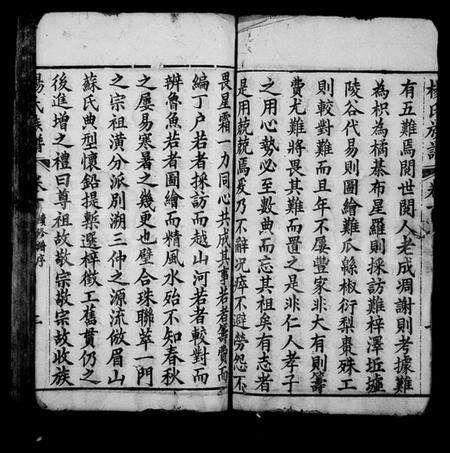 有五難焉閱世閱人老成凋謝則考據難
為枳為橘棊布星羅則採訪難梓澤坵墟
陵谷代易則圖繪難瓜綿椒衍梨棗殊工
則較對難而且年不屢豐家非大有則籌
費尤難將畏其難而置之是非仁人孝子
之用心勢必至數典而忘其祖矣有志者
是用兢兢焉矣乃不辭況瘁不避勞怨不
畏星霜一力同心共成其事若者籌費而
編丁户若者採訪而越山河若者較對而
辨魯魚若者圖繪而精風水殆不知春秋
之屢易寒暑之幾更也璧合珠聯萃一門
之宗祖潢分派別溯三仲之源流倣眉山
蘇氏典型懷鉛提槧選梓徵工舊貫仍之
後進增之禮曰尊祖故敬宗敬宗故收族
楊氏族譜 卷